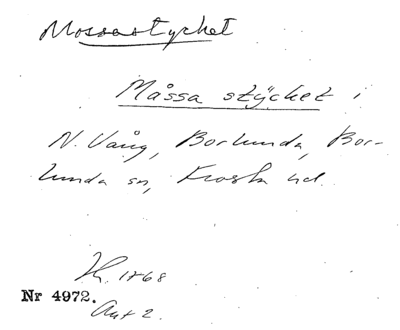 Mossastycket
Måssa stycket i
N. Vång, Borlunda, Bor-
lunda sn, Frosta hd.
1768
Nr 4972.
Akt 2.